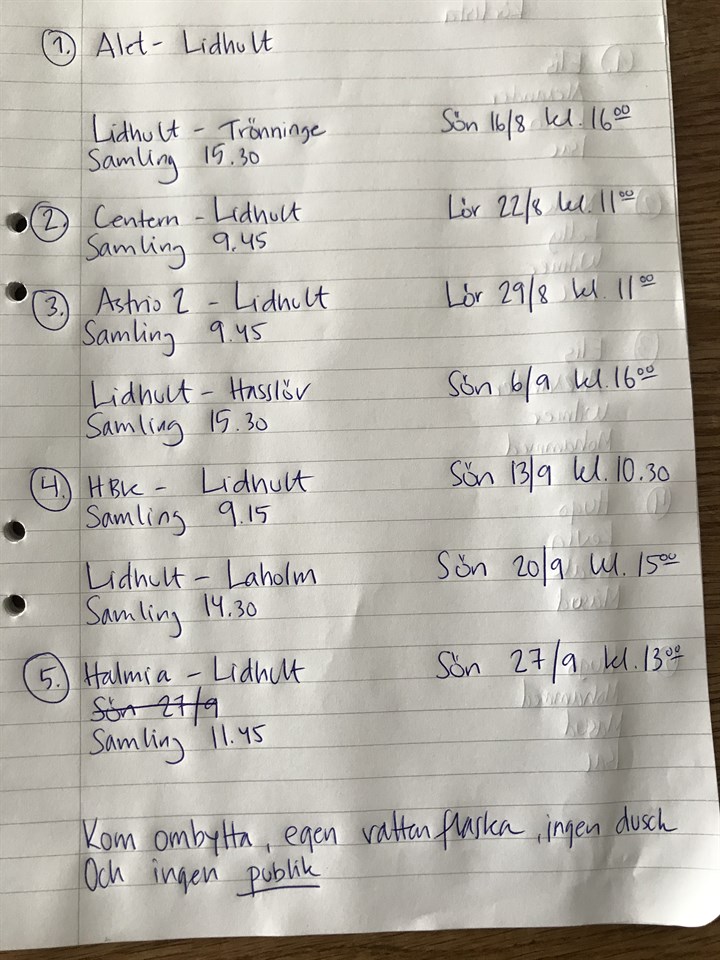 1. Alet - Lidhult
Lidhult - Trönninge Sön 16/8 kl. 16⁰⁰
Samling 15.30
2. Centern - Lidhult Lör 22/8 kl. 11⁰⁰
Samling 9.45
3. Astrio 2 - Lidhult Lör 29/8 kl. 11⁰⁰
Samling 9.45
Lidhult - Hasslöv Sön 6/9 kl. 16⁰⁰
Samling 15.30
4. HBK - Lidhult Sön 13/9 kl. 10.30
Samling 9.15
Lidhult - Laholm Sön 20/9 kl. 15⁰⁰
Samling 14.30
5. Halmia - Lidhult Sön 27/9 kl. 13⁰⁰
Sön 27/9
Samling 11.45
Kom ombytta, egen vattenflaska, ingen dusch
Och ingen publik